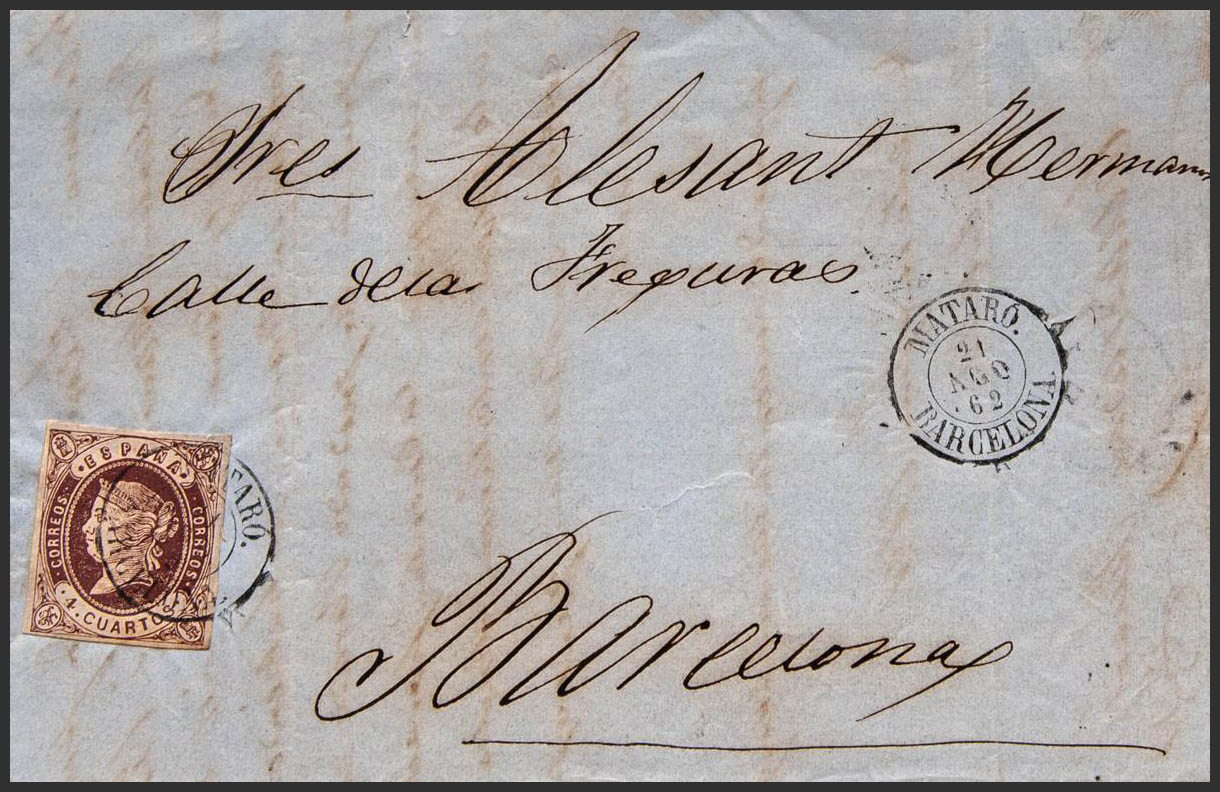 Sres Alesant Hermanos
Calle de las Frequras.
MATARÓ.
21
AGO
62
BARCELONA
ESPAÑA
CORREOS
CORREOS
4 CUARTOS
TARÓ.
Barcelona